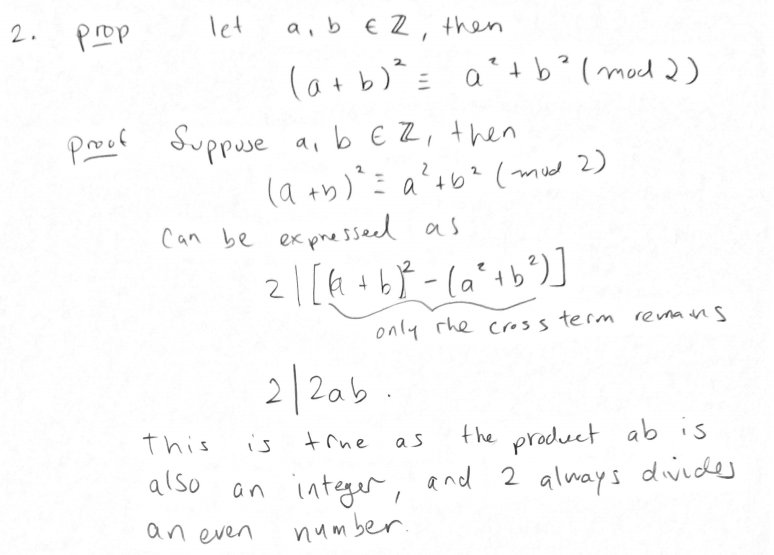 2. prop let a, b ∈ ℤ, then
(a + b)² ≡ a² + b² (mod 2)
proof Suppose a, b ∈ ℤ, then
(a + b)² ≡ a² + b² (mod 2)
can be expressed as
2 | [(a + b)² - (a² + b²)]
only the cross term remains
2 | 2ab .
this is true as the product ab is
also an integer, and 2 always divides
an even number.